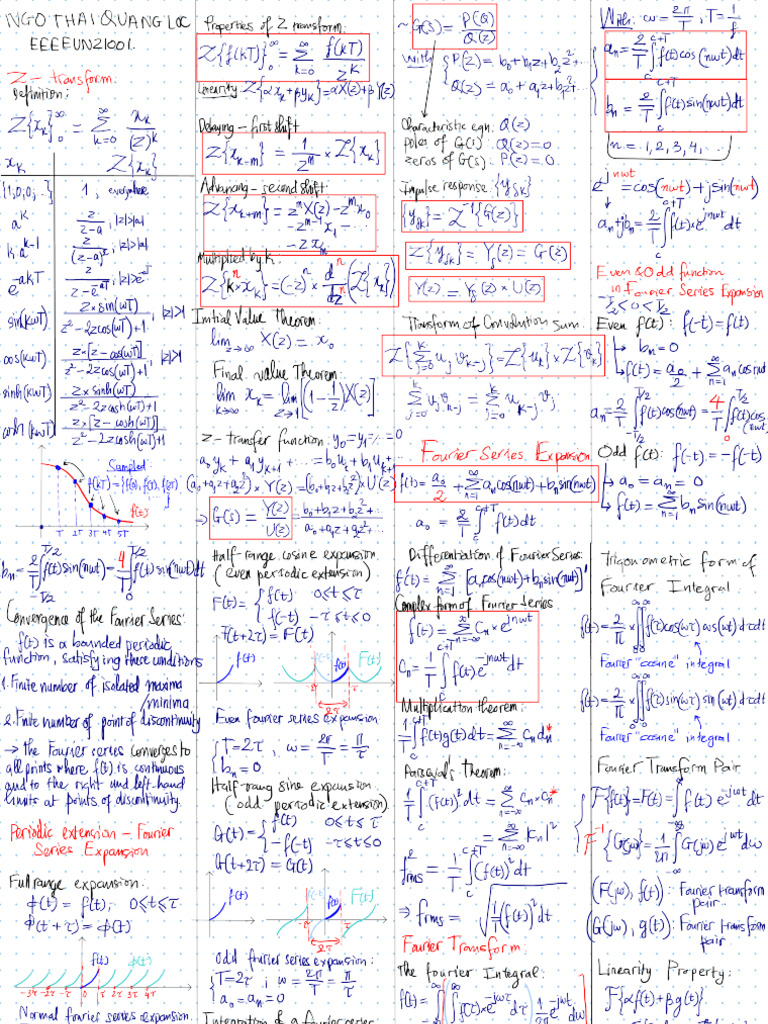 NGO THAI QUANG LOC
EEEEUN21001.
Z - transform:
Definition:
Z{x_k}_0^∞ = Σ_{k=0}^∞ x_k/(z)^k
x_k  Z{x_k}
{1,0,0,..}  1, everywhere
a^k  z/(z-a), |z|>|a|
k a^{k-1}  z/(z-a)^2, |z|>|a|
e^{-akT}
sin(kωT)  z×sin(ωT)/(z²-2zcos(ωT)+1), |z|>1
cos(kωT)  z×[z-cos(ωT)]/(z²-2zcos(ωT)+1), |z|>1
sinh(kωT)  z×sinh(ωT)/(z²-2zcosh(ωT)+1)
cosh(kωT)  z×[z-cosh(ωT)]/(z²-2zcosh(ωT)+1)
Sampled
f(t)
T 2T 3T 4T 5T
b_n = 2/T ∫_{-T/2}^{T/2} f(t)sin(nωt) = 4/T ∫_0^{T/2} f(t)sin(nωt)dt
Convergence of the Fourier Series:
f(t) is a bounded periodic
function, satisfying these conditions
1. Finite number of isolated maxima
minima
2. Finite number of point of discontinuity
→ the Fourier series converges to
all points where f(t) is continuous
and to the right and left-hand
limits at points of discontinuity.
Periodic extension - Fourier
Series Expansion
Full range expansion:
ϕ(t) = f(t), 0≤t≤τ
ϕ(t+τ) = ϕ(t)
f(t) ϕ(t)
-3τ -2τ -τ 0 τ 2τ 3τ 4τ
Normal fourier series expansion
Properties of Z transform:
Z{f(kT)}_0^∞ = Σ_{k=0}^∞ f(kT)/z^k
Linearity Z{αx_k+βy_k} = αX(z)+βY(z)
Delaying - first shift
Z{x_{k-m}} = 1/z^m × Z{x_k}
Advancing - second shift
Z{x_{k+m}} = z^m X(z) - z^m x_0
- z^{m-1}x_1 - ...
- z x_m
Multiplied by k:
Z{k^n × x_k} = (-z)^n × d^n/dz^n (Z{x_k})
Initial Value Theorem:
lim_{z→∞} X(z) = x_0
Final value Theorem:
lim_{k→∞} x_k = lim_{z→1} [(1-1/z)X(z)]
z-transfer function: y_0=y_1=...=0
a_0y_k + a_1y_{k+1} + ... = b_0u_k + b_1u_{k+1}
(a_0+a_1z+a_2z²) × Y(z) = (b_0+b_1z+b_2z²) × U(z)
⇒ G(s) = Y(z)/U(z) = (b_0+b_1z+b_2z²+...)/(a_0+a_1z+a_2z²+...)
Half-range cosine expansion
(even periodic extension)
F(t) = { f(t) 0≤t≤τ
f(-t) -τ≤t≤0
F(t+2τ) = F(t)
f(t) f(-t) f(t) F(t)
2τ
Even fourier series expansion
{ T=2τ, ω = 2π/T = π/τ
b_n = 0
Half-rang sine expansion
(odd periodic extension)
G(t) = { f(t) 0≤t≤τ
-f(-t) -τ≤t≤0
G(t+2τ) = G(t)
2τ
Odd fourier series expansion:
{ T=2τ, ω = 2π/T = π/τ
a_0 = a_n = 0
Integration of a fourier series
~ G(s) = P(Q)/Q(z)
with { P(z) = b_0+b_1z+b_2z²+...
Q(z) = a_0+a_1z+b_2z²...
Characteristic eqn: Q(z)
poles of G(s): Q(z)=0.
zeros of G(s): P(z)=0.
Impulse response: {y_{δk}}
{y_{δk}} = Z^{-1}{G(z)}
Z{y_{δk}} = Y_δ(z) = G(z)
Y(z) = Y_δ(z) × U(z)
Transform of Convolution sum.
Z{Σ_{j=0}^k u_j v_{k-j}} = Z{u_k} × Z{v_k}
Σ_{j=0}^k u_j v_{k-j} = Σ_{j=0}^k u_{k-j} v_j
Fourier Series Expansion
f(t) = a_0/2 + Σ_{n=1}^∞ a_n cos(nωt) + b_n sin(nωt)
a_0 = 2/T ∫_c^{c+T} f(t)dt
Differentiation of Fourier Series:
f(t) = Σ_{n=1}^∞ [a_n cos(nωt)+b_n sin(nωt)]'
Complex form of Fourier series
f(t) = Σ_{n=-∞}^∞ c_n × e^{jnωt}
c_n = 1/T ∫_c^{c+T} f(t)e^{-jnωt} dt
Multiplication theorem:
1/T ∫_c^{c+T} f(t)g(t)dt = Σ_{n=-∞}^∞ c_n d_n*
Parseval's Theorem:
1/T ∫_c^{c+T} (f(t))² dt = Σ_{n=-∞}^∞ c_n c_n*
= Σ_{n=-∞}^∞ |c_n|²
f²_rms = 1/T ∫_c^{c+T} (f(t))² dt
⇒ f_rms = √(1/T ∫(f(t))² dt)
Fourier Transform:
The fourier Integral:
With: ω = 2π/T, T = 1/f
a_n = 2/T ∫_c^{c+T} f(t)cos(nωt)dt
b_n = 2/T ∫_c^{c+T} f(t)sin(nωt)dt
n = 1, 2, 3, 4, ...
e^{jnωt} = cos(nωt)+jsin(nωt)
a_n+jb_n = 2/T ∫_c^{c+T} f(t)×e^{jnωt} dt
Even & Odd function
in Fourier Series Expansion
-T/2 < 0 < T/2
Even f(t): f(-t) = f(t)
↳ b_n = 0
↳ f(t) = a_0/2 + Σ_{n=1}^∞ a_n cos nωt
a_n = 2/T ∫_{-T/2}^{T/2} f(t)cos(nωt) = 4/T ∫_0^{T/2} f(t)cos(nωt)
Odd f(t): f(-t) = -f(t)
↳ a_0 = a_n = 0
↳ f(t) = Σ_{n=1}^∞ b_n sin(nωt)
Trigonometric form of
Fourier Integral
f(t) = 2/π × ∫_0^∞∫_0^∞ f(τ)cos(ωτ)cos(ωt)dτdω
Fourier "cosine" integral
f(t) = 2/π × ∫_0^∞∫_0^∞ f(τ)sin(ωτ)sin(ωt)dτdω
Fourier "cosine" integral
Fourier Transform Pair
F{f(t)} = F(t) = ∫_{-∞}^∞ f(t) e^{-jωt} dt
F^{-1}{G(jω)} = 1/2π ∫_{-∞}^∞ G(jω)e^{jωt} dω
(F(jω), f(t)): Fourier transform
pair.
(G(jω), g(t)): Fourier transform
pair
Linearity Property:
F{αf(t)+βg(t)}